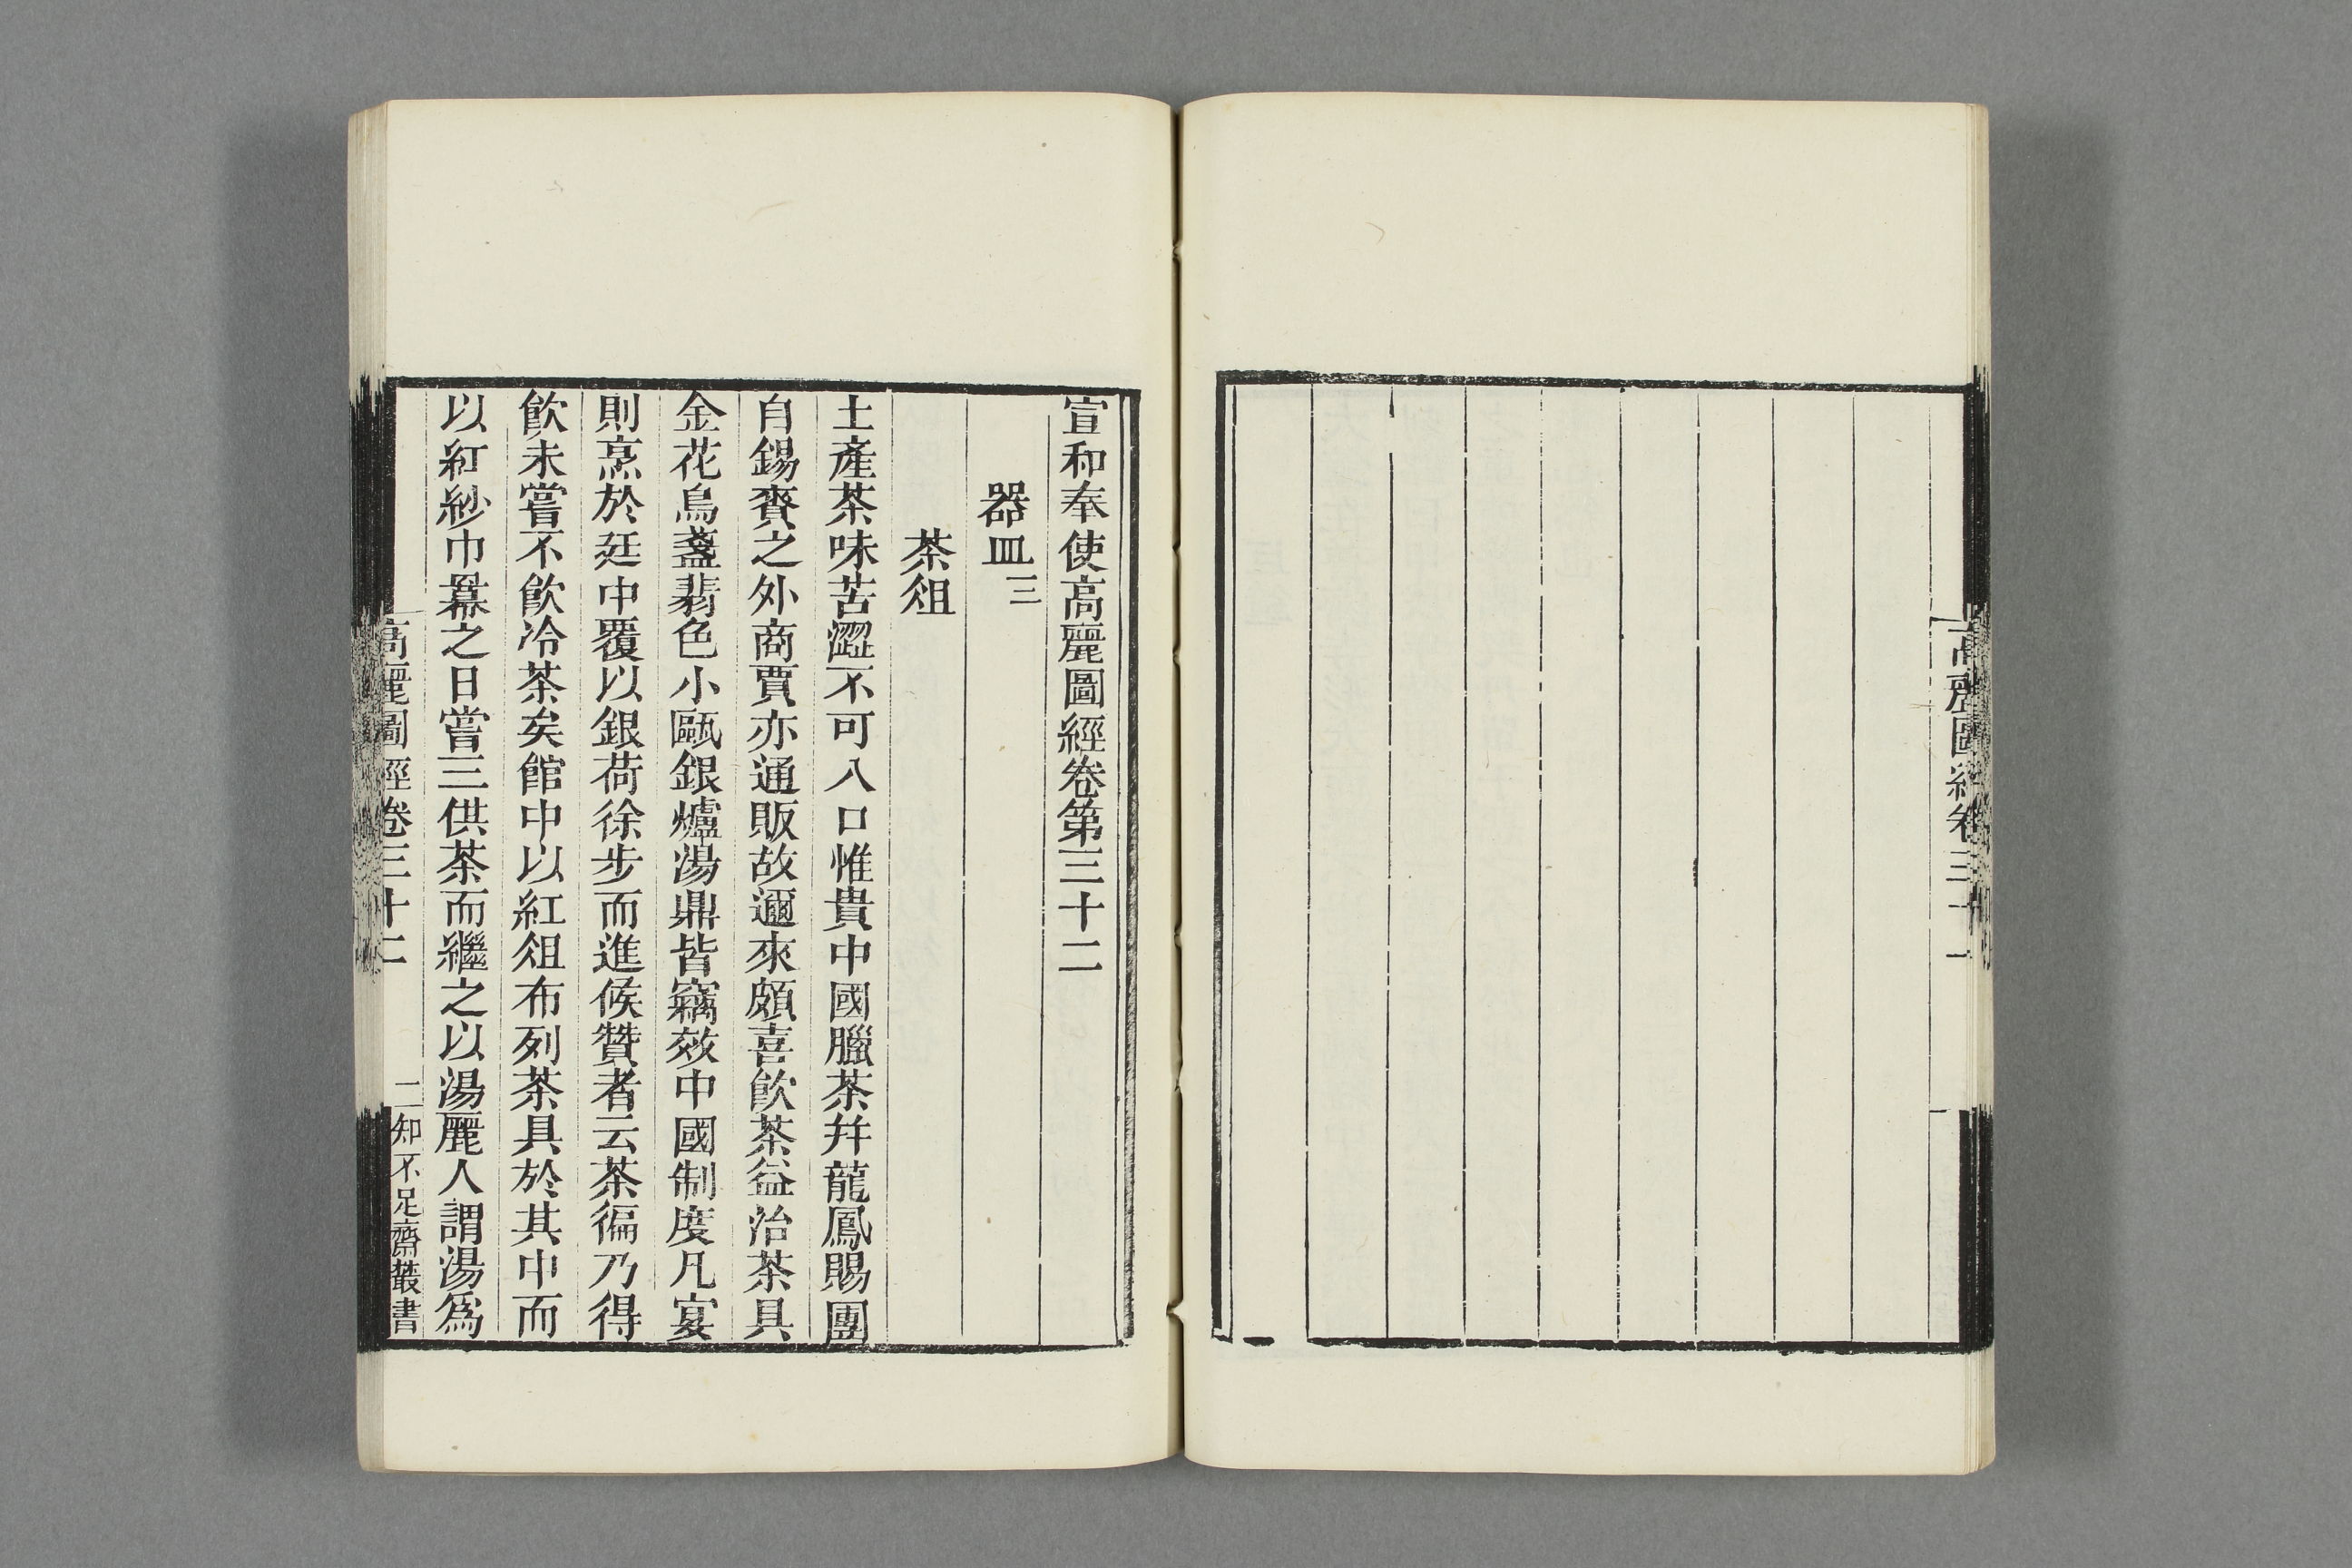 高麗圖經卷三十一
宣和奉使高麗圖經卷第三十二
器皿三
茶俎
土產茶味苦澀不可入口惟貴中國臘茶幷龍鳳賜團
自錫賚之外商賈亦通販故邇來頗喜飲茶益治茶具
金花烏盞翡色小甌銀爐湯鼎皆竊效中國制度凡宴
則烹於廷中覆以銀荷徐步而進候贊者云茶徧乃得
飲未嘗不飲冷茶矣館中以紅俎布列茶具於其中而
以紅紗巾羃之日嘗三供茶而繼之以湯麗人謂湯爲
高麗圖經卷三十二
二知不足齋叢書